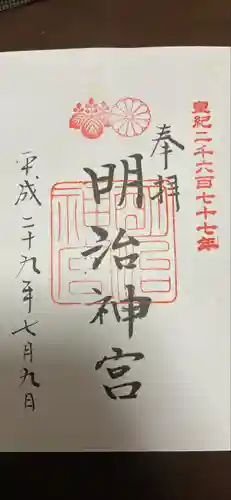 皇紀二千六百七十七年
奉拝
明治神宮
平成二十九年七月九日